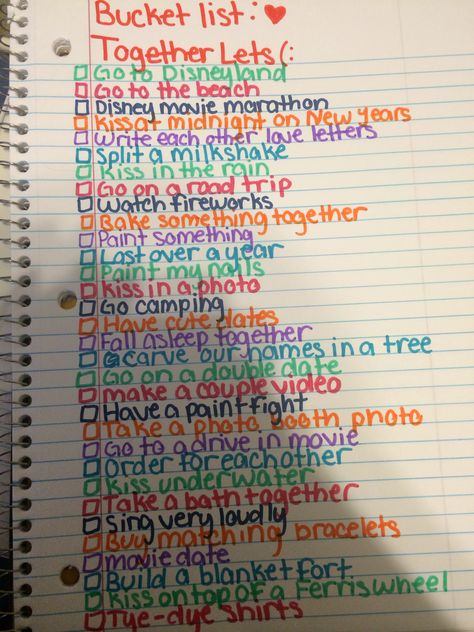 Bucket list: ♥
Together Lets (:
Go to Disneyland
Go to the beach
Disney movie marathon
Kiss at midnight on New Years
Write each other love letters
Split a milkshake
Kiss in the rain
Go on a road trip
Watch fireworks
Bake something together
Paint something
Last over a year
Paint my nails
Kiss in a photo
Go camping
Have cute dates
Fall asleep together
Carve our names in a tree
Go on a double date
make a couple video
Have a paint fight
Take a photo booth photo
Go to a drive in movie
Order for eachother
Kiss underwater
Take a bath together
Sing very loudly
Buy matching bracelets
movie date
Build a blanket fort
Kiss on top of a Ferris wheel
Tye-dye shirts